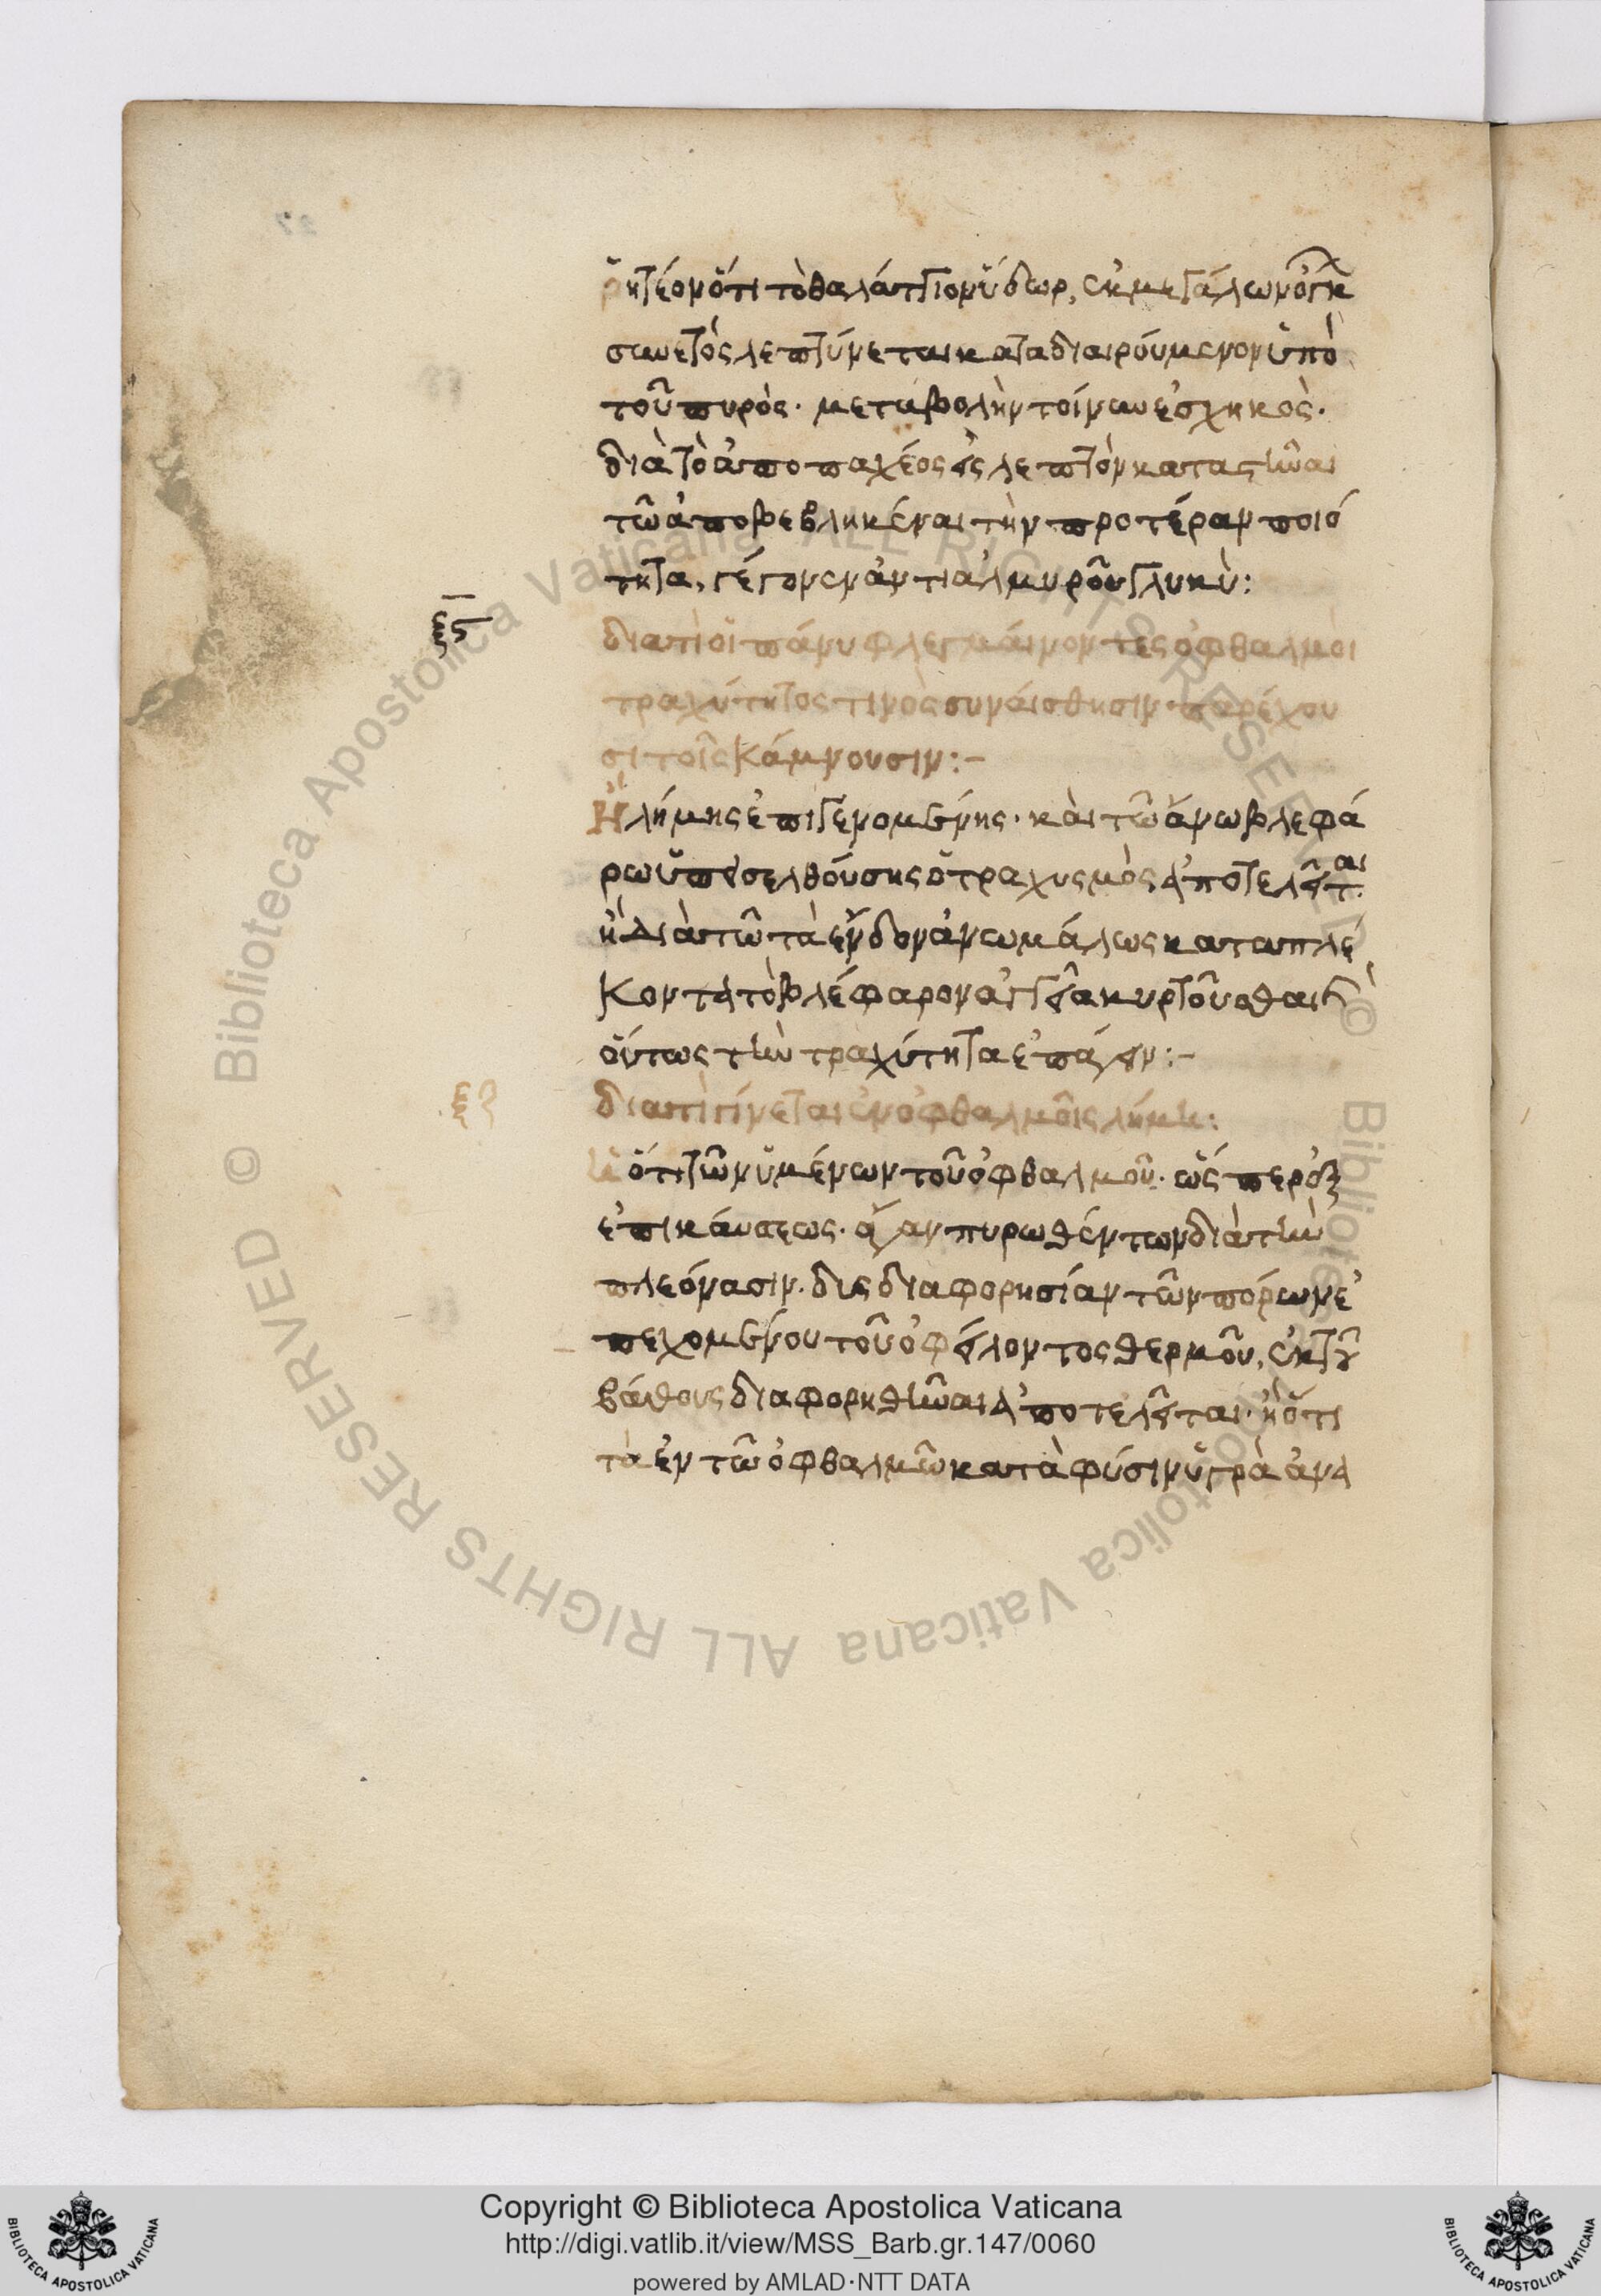 ῥητέον ὅτι τὸ θαλάττιον ὕδωρ, ἐκ μεγάλων ὄγκ
συνετὸς λεπτύνεται καταδιαιρούμενον ὑπὸ
τοῦ πυρὸς· μεταβολὴν τοίνυν ἐσχηκὸς·
διὰ τὸ ἀπο παχέος εἰς λεπτὸν καταστῆναι
τῶ ἀποβεβληκέναι τὴν προτέραν ποιό
τητα, γέγονεν ἀντι ἁλμυροῦ γλυκὺ:
ξϛ
διατὶ οἱ πάνυ φλεγμαίνοντες ὀφθαλμοὶ
τραχύτητος τινὸς συναίσθησιν παρέχου
σι τοῖς κάμνουσιν:-
Ἢ λήμης ἐπιγενομένης· καὶ τῶ ἄνω βλεφά
ρω ὑπεισελθούσης ὁ τραχυσμὸς ἀποτελεῖται
ἢ διὰ τῶ τὰ ἔνδον ἀνωμάλως καταπλέ
κοντα τὸ βλέφαρον ἀγγεῖα κυρτοῦσθαι καὶ
οὕτως τὴν τραχύτητα ἐπάγειν:-
ξζ
διατὶ γίνεται ἐν ὀφθαλμοῖς λήμη:
ἢ ὅτι τῶν ὑμένων τοῦ ὀφθαλμοῦ· ὥσπερ ἐξ
ἐπικαύσεως· ἄγαν πυρωθέντων διὰ τὴν
πλεόνασιν· δις διαφορησίαν τῶν πόρων ἐ
πεχομένου τοῦ ὀφείλοντος θερμοῦ, ἐκ τοῦ
βάθους διαφορηθῆναι ἀποτελεῖται· ἢ ὅτι
τὰ ἐν τῶ ὀφθαλμῶ κατὰ φύσιν ὑγρὰ ἀνα
Copyright © Biblioteca Apostolica Vaticana
http://digi.vatlib.it/view/MSS_Barb.gr.147/0060
powered by AMLAD·NTT DATA
BIBLIOTECA APOSTOLICA VATICANA
BIBLIOTECA APOSTOLICA VATICANA
© Biblioteca Apostolica Vaticana ALL RIGHTS RESERVED
© Biblioteca Apostolica Vaticana ALL RIGHTS RESERVED